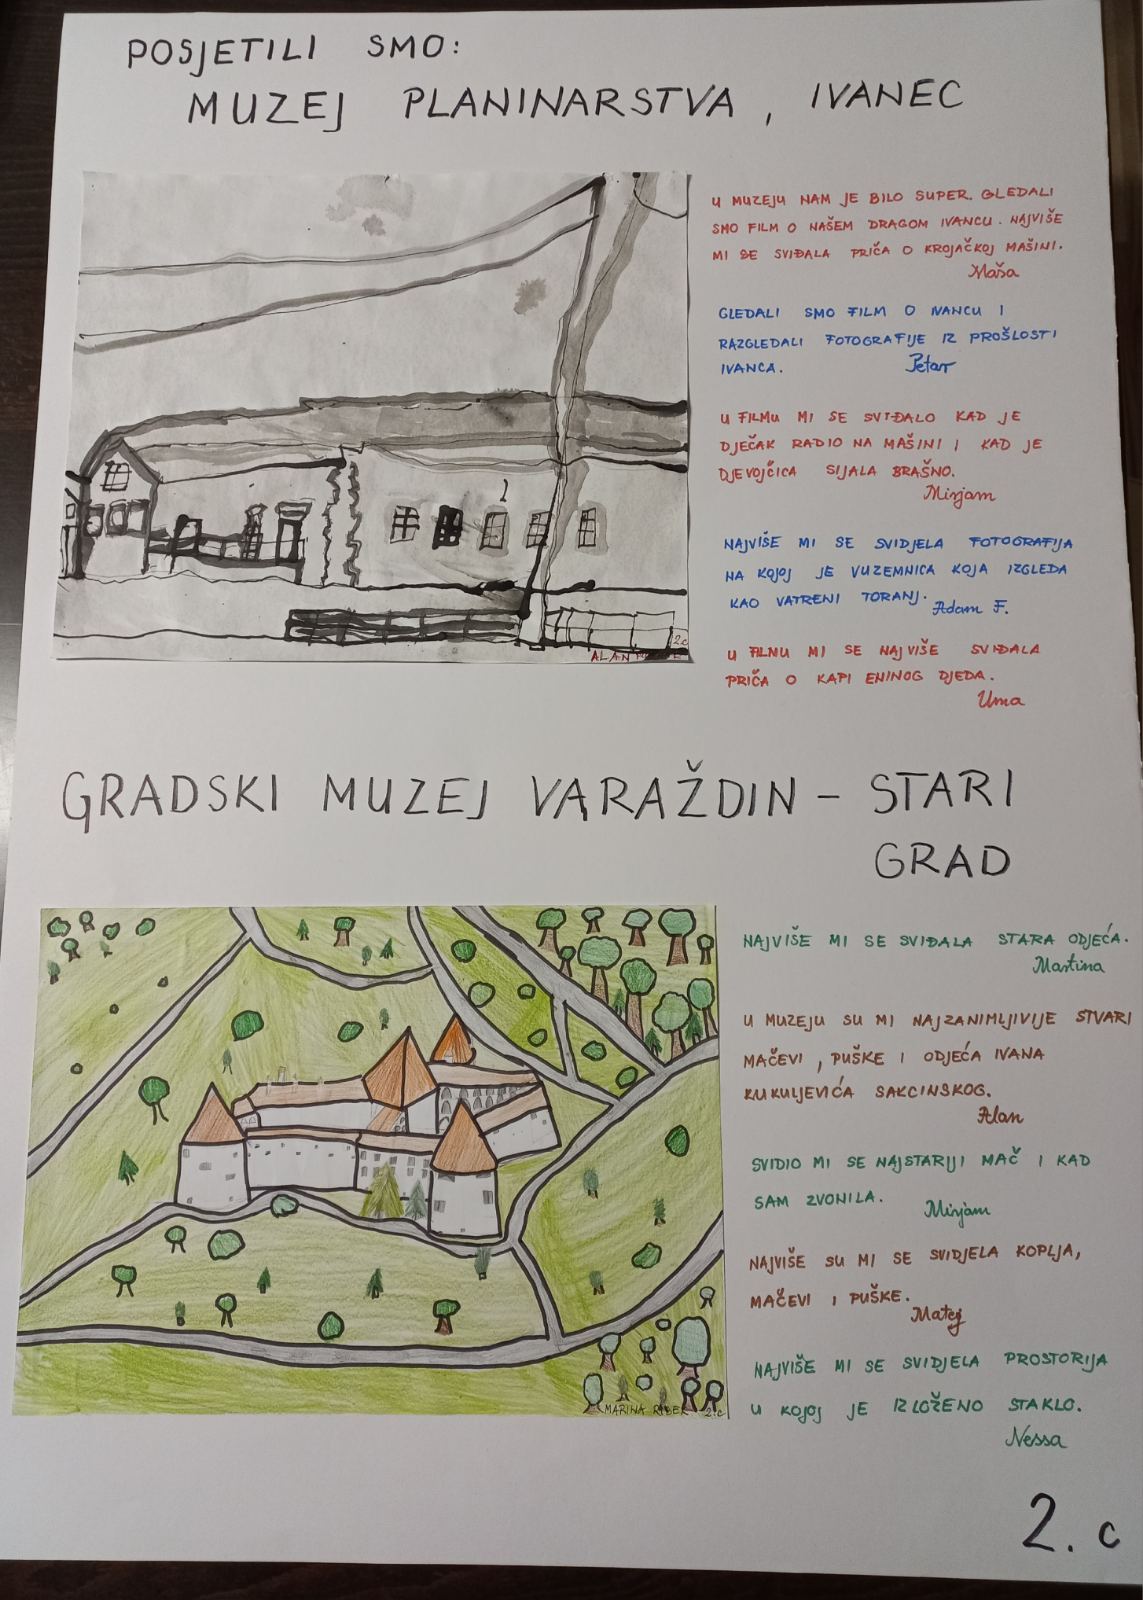 POSJETILI SMO:
MUZEJ PLANINARSTVA, IVANEC
U MUZEJU NAM JE BILO SUPER. GLEDALI
SMO FILM O NAŠEM DRAGOM IVANCU. NAJVIŠE
MI SE SVIĐALA PRIČA O KROJAČKOJ MAŠINI.
Maša
GLEDALI SMO FILM O IVANCU I
RAZGLEDALI FOTOGRAFIJE IZ PROŠLOSTI
IVANCA.
Petar
U FILMU MI SE SVIĐALO KAD JE
DJEČAK RADIO NA MAŠINI I KAD JE
DJEVOJČICA SIJALA BRAŠNO.
Mirjam
NAJVIŠE MI SE SVIDJELA FOTOGRAFIJA
NA KOJOJ JE VUZEMNICA KOJA IZGLEDA
KAO VATRENI TORANJ.
Adam F.
U FILMU MI SE NAJVIŠE SVIĐALA
PRIČA O KAPI ENINOG DJEDA.
Uma
2.c
ALAN
GRADSKI MUZEJ VARAŽDIN - STARI
GRAD
NAJVIŠE MI SE SVIĐALA STARA ODJEĆA.
Martina
U MUZEJU SU MI NAJZANIMLJIVIJE STVARI
MAČEVI, PUŠKE I ODJEĆA IVANA
KUKULJEVIĆA SAKCINSKOG.
Alan
SVIDIO MI SE NAJSTARIJI MAČ I KAD
SAM ZVONILA.
Mirjam
NAJVIŠE SU MI SE SVIDJELA KOPLJA,
MAČEVI I PUŠKE.
Matej
NAJVIŠE MI SE SVIDJELA PROSTORIJA
U KOJOJ JE IZLOŽENO STAKLO.
Nessa
MARINA 2.c
2. c